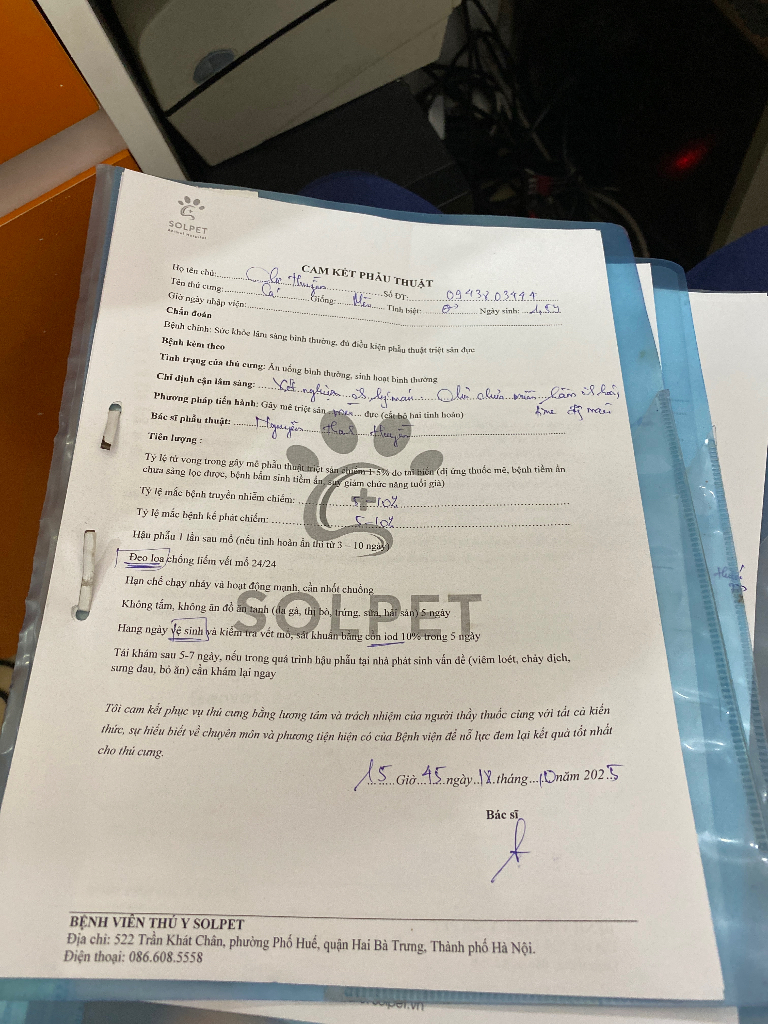 SOLPET
Animal Hospital
CAM KẾT PHẪU THUẬT
Họ tên chủ: Chị Thuyên Số ĐT: 0943803444
Tên thú cưng: Cá Giống: Mèo Tính biệt: Ngày sinh: 1,5
Giờ ngày nhập viện:
Chẩn đoán
Bệnh chính: Sức khỏe lâm sàng bình thường, đủ điều kiện phẫu thuật triệt sản đực
Bệnh kèm theo
Tình trạng của thú cưng: Ăn uống bình thường, sinh hoạt bình thường
Chỉ định cận lâm sàng: Xét nghiệm máu
Phương pháp tiến hành: Gây mê triệt sản mèo đực (cắt bỏ hai tinh hoàn)
Bác sĩ phẫu thuật: Nguyễn
Tiên lượng :
Tỷ lệ tử vong trong gây mê phẫu thuật triệt sản chiếm 1-5% do tai biến (dị ứng thuốc mê, bệnh tiềm ẩn
chưa sàng lọc được, bệnh bẩm sinh tiềm ẩn, suy giảm chức năng tuổi già)
Tỷ lệ mắc bệnh truyền nhiễm chiếm: 5-10%
Tỷ lệ mắc bệnh kế phát chiếm: 5-10%
Hậu phẫu 1 lần sau mổ (nếu tinh hoàn ẩn thì từ 3 – 10 ngày)
Đeo loa chống liếm vết mổ 24/24
Hạn chế chạy nhảy và hoạt động mạnh, cần nhốt chuồng
SOLPET
Không tắm, không ăn đồ ăn tanh (da gà, thị bò, trứng, sữa, hải sản) 5 ngày
Hang ngày vệ sinh và kiểm tra vết mổ, sát khuẩn bằng cồn iod 10% trong 5 ngày
Tái khám sau 5-7 ngày, nếu trong quá trình hậu phẫu tại nhà phát sinh vấn đề (viêm loét, chảy dịch,
sưng đau, bỏ ăn) cần khám lại ngay
Tôi cam kết phục vụ thú cưng bằng lương tâm và trách nhiệm của người thầy thuốc cùng với tất cả kiến
thức, sự hiểu biết về chuyên môn và phương tiện hiện có của Bệnh viện để nỗ lực đem lại kết quả tốt nhất
cho thú cưng.
15 Giờ 45 ngày 18 tháng 10 năm 2025
Bác sĩ
BỆNH VIỆN THÚ Y SOLPET
Địa chỉ: 522 Trần Khát Chân, phường Phố Huế, quận Hai Bà Trưng, Thành phố Hà Nội.
Điện thoại: 086.608.5558
solpet.vn